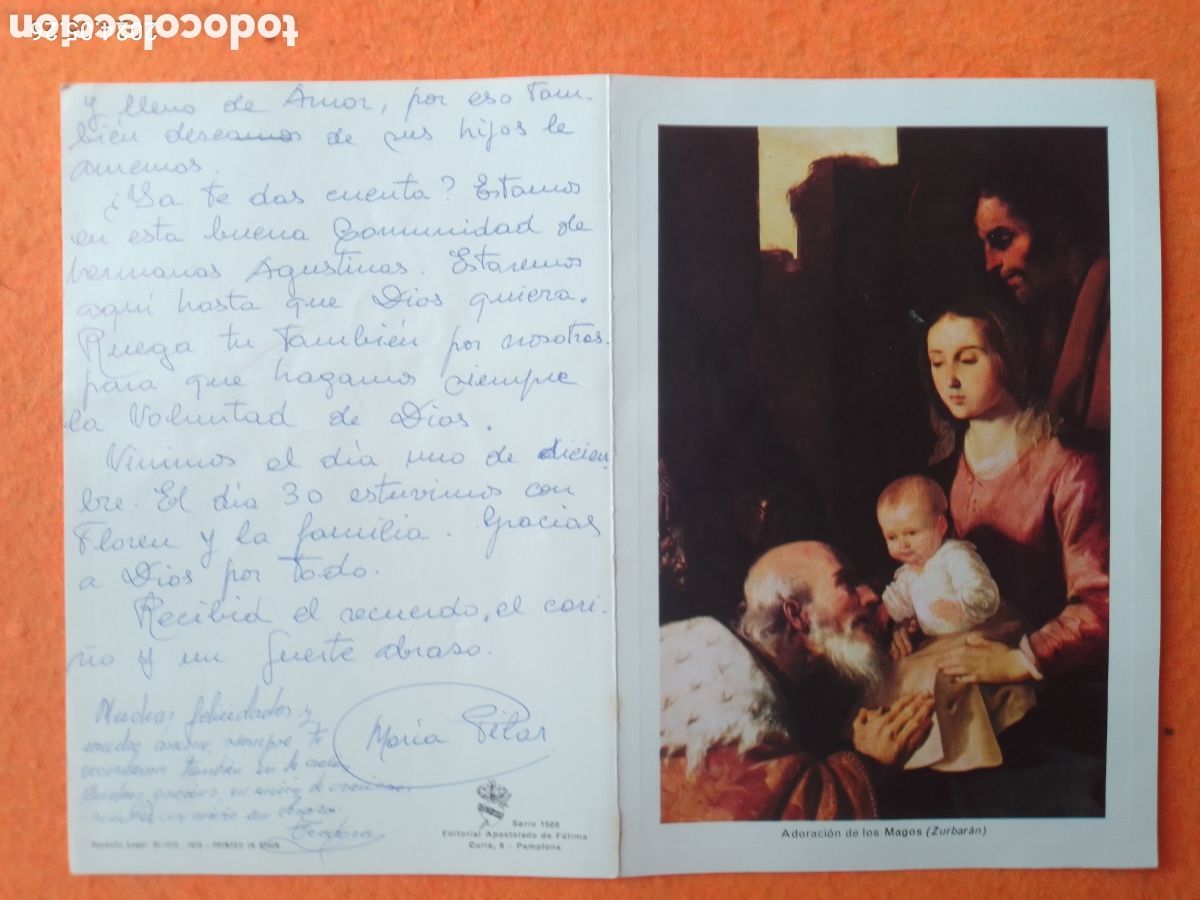 todocoleccion
y lleno de Amor, por eso tam-
bién deseamos de sus hijos le
amemos.
¿Ya te das cuenta? Estamos
en esta buena Comunidad de
hermanas Agustinas. Estaremos
aquí hasta que Dios quiera.
Ruega tu también por nosotras.
para que hagamos siempre
la Voluntad de Dios.
Vinimos el día uno de diciem
bre. El día 30 estuvimos con
Floren y la familia. Gracias
a Dios por todo.
Recibid el recuerdo, el cari-
ño y un fuerte abraso.
María Pilar
Muchas felicidades y
siempre te
recordamos también en la
con cariño un abrazo
Teodora
Serie 1506
Editorial Apostolado de Fátima
Curia, 8 - Pamplona
Depósito Legal: - 1975 - PRINTED IN SPAIN
Adoración de los Magos (Zurbarán)